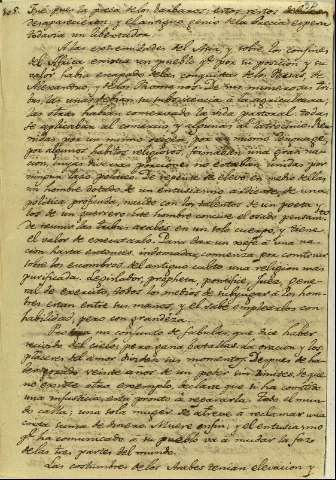 108.
fue por la presa de los barbaros; estos restos
desaparecieron, y el antiguo genio de la Grecia espera
todavia un libertador.
A las extremidades del Asia, y sobre los confines
del Africa existia un pueblo qe por su posicion y su
valor habia escapado de las conquistas de los Persas, de
Alexandro, y de los Romanos. De sus numerosas tri-
bus, las unas debian su subsistencia à la agricultura;
las otras habian conservado la vida pastoral: todas
se aplicaban al comercio, y algunas al latrocinio. Reu-
nidas por un mismo origen, por un mismo lenguage,
por algunos habitos religiosos, formaban una gran na-
cion, cuyas diversas porciones no estaban unidas por
ningun lazo politico. De repente se elevó en medio de ellas
un hombre dotado de un entusiasmo ardiente, de una
politica profunda, nacido con los talentos de un poeta y
los de un guerrero. Este hombre concibe el osado pensamto
de reunir las tribus arabes en un solo cuerpo, y tiene
el valor de executarlo. Para dar un xefe à una na-
cion hasta entonces indomada, comienza por construir
sobre los escombros del antiguo culto una religion mas
purificada. Legislador, propheta, pontifice, juez, gene-
ral de exercito, todos los medios de subyugar à los hom-
bres estan entre sus manos, y él sabe emplearlos con
habilidad, pero con grandeza.
un conjunto de fabulas, que dice haber
recibido del cielo; pero gana batallas. La oracion y los
placeres del amor dividen sus momentos. Despues de ha-
ber gozado veinte años de un poder sin limites, de que
no existe otro exemplo, declara que si ha cometido
una injusticia, està pronto à repararla. Todo el mun-
do calla: una sola muger se atreve à reclamar una
corta suma de dinero. Muere enfin; y el entusiasmo
qe ha comunicado à su pueblo va à mudar la faz
de las tres partes del mundo.
Las costumbres de los Arabes tenian elevacion y